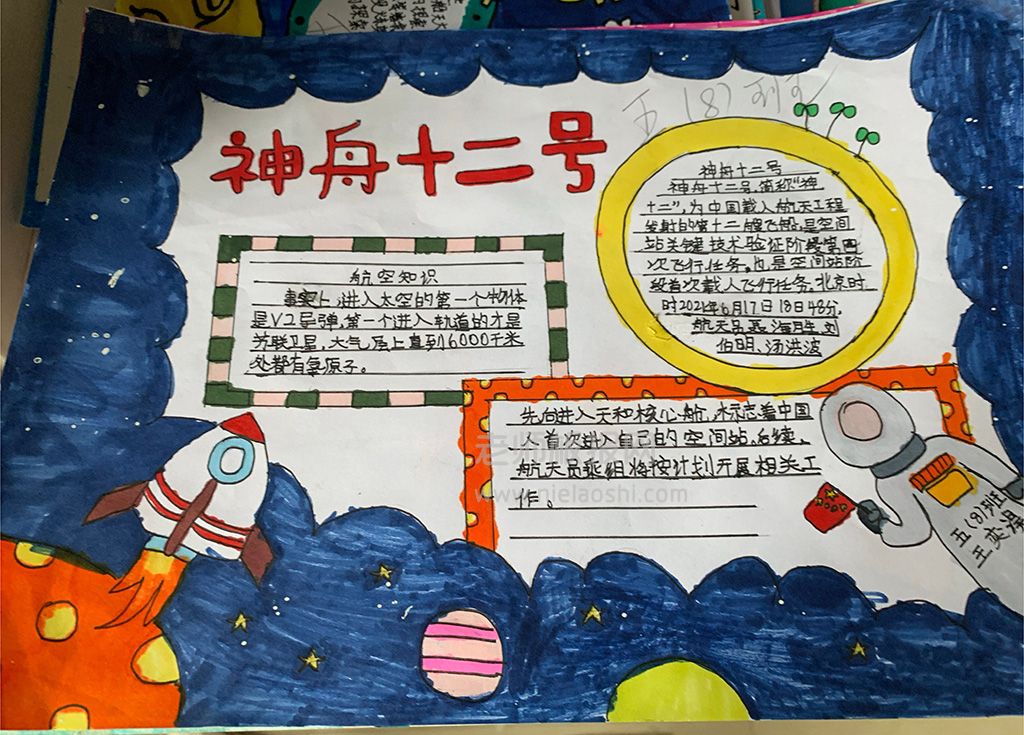 神舟十二号
五（8）
神舟十二号
神舟十二号，简称“神
十二”，为中国载人航天工程
发射的第十二艘飞船，是空间
站关键技术验证阶段第四
次飞行任务，也是空间站阶
段首次载人飞行任务。北京时
时2021年6月17日18日48分，
航天员聂海胜、刘
伯明、汤洪波
航空知识
事实上，进入太空的第一个物体
是V2导弹，第一个进入轨道的才是
苏联卫星，大气层上直到6000千米
处都有氧原子。
先后进入天和核心舱，标志着中国
人首次进入自己的空间站，后续，
航天员乘组将按计划开展相关工
作。
老师板报网
www.qielaoshi.com
五（8）班
王